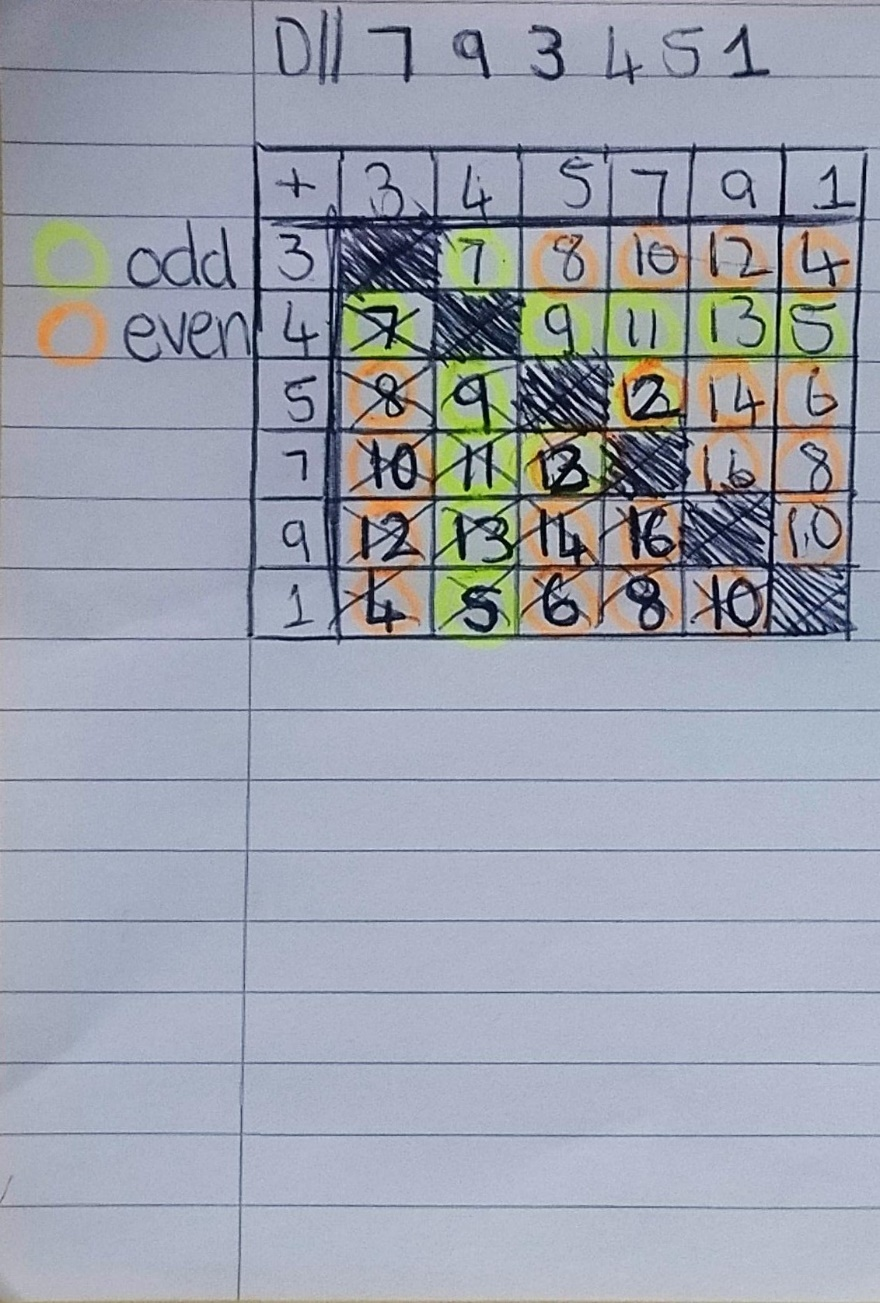 D// 7 9 3 4 5 1
+ 3 4 5 7 9 1
odd 3 7 8 10 12 4
even 4 7 9 11 13 5
5 8 9 12 14 6
7 10 11 12 16 8
9 12 13 14 16 10
1 4 5 6 8 10